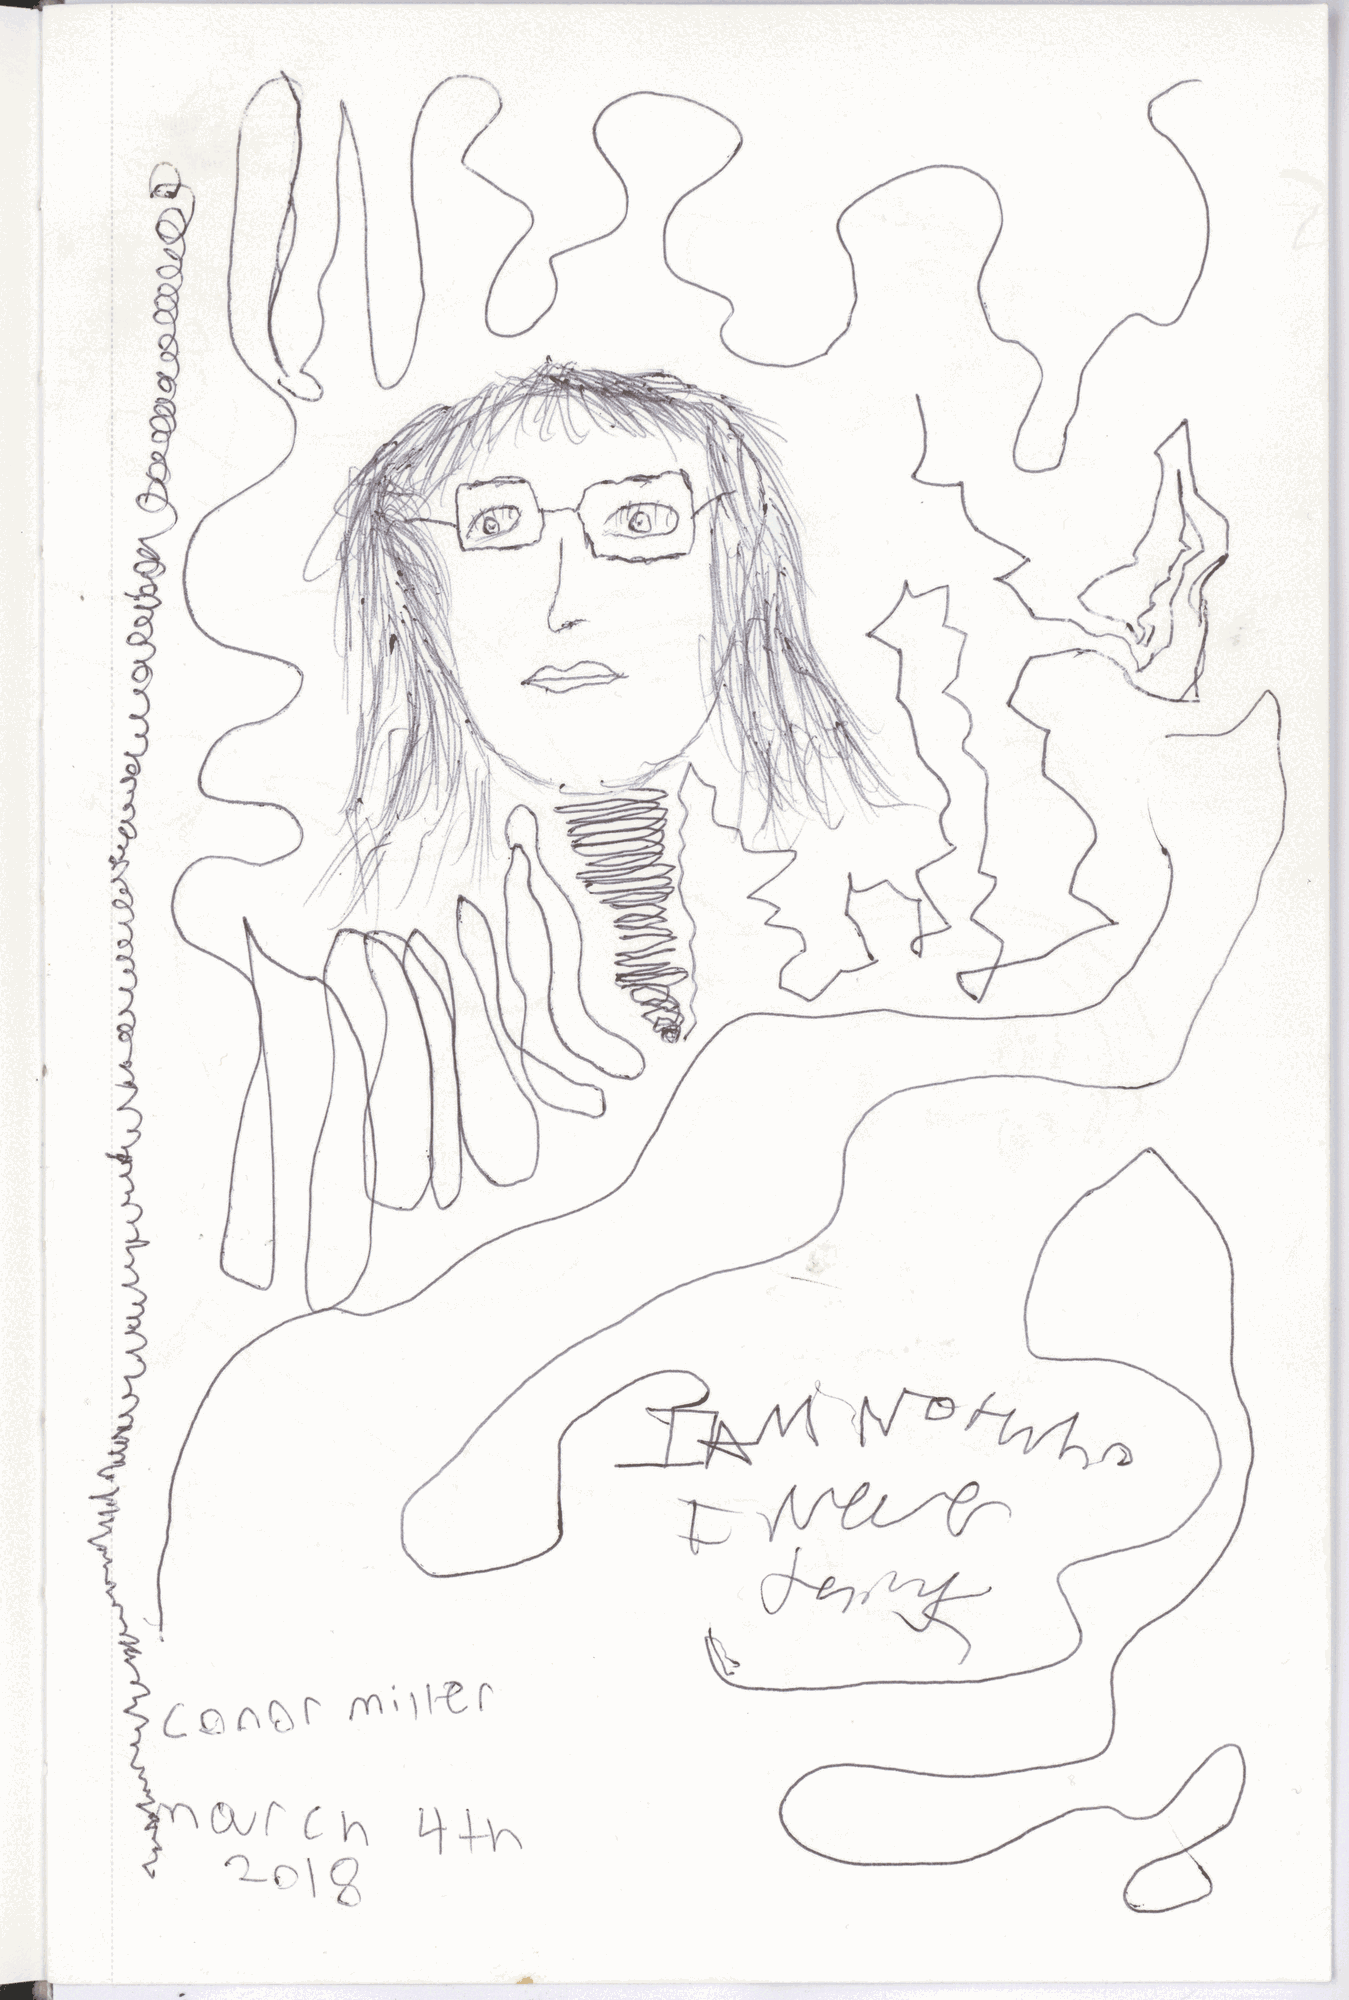 I AM Not who
I Never
conor miller
march 4th
2018